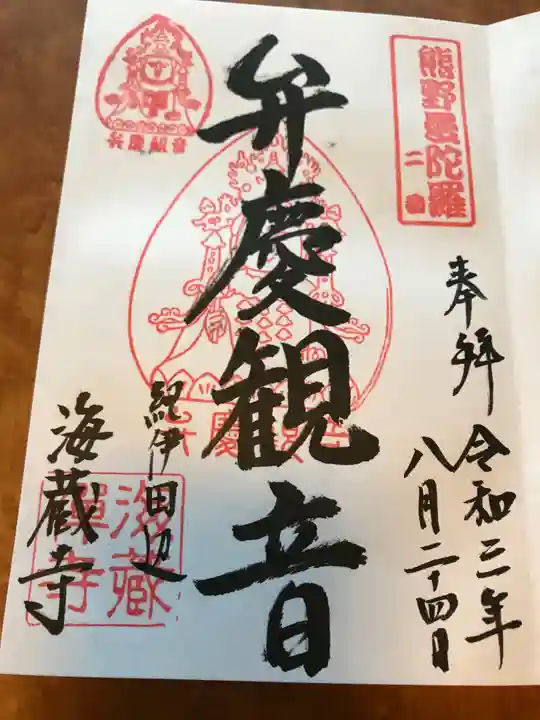 熊野曼陀羅
二番
奉拝
令和三年
八月二十四日
弁慶観音
弁慶観音
紀伊田辺
海蔵寺
海蔵
禅寺